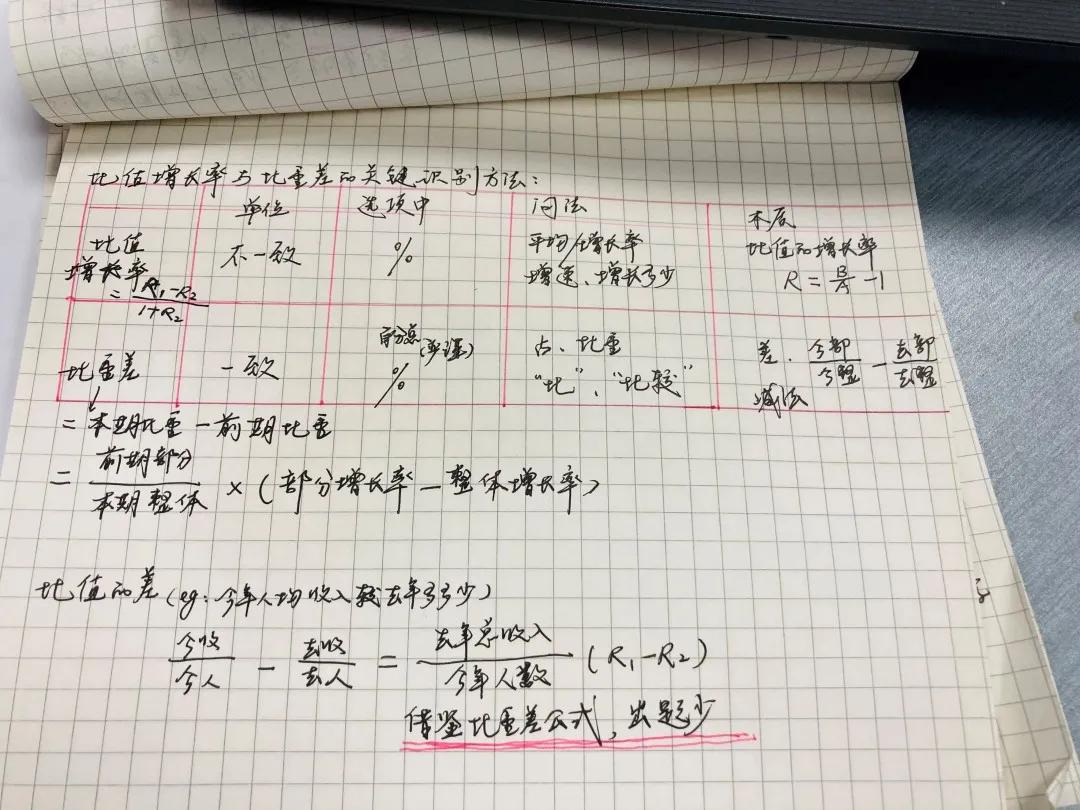 比值增长率与比重差的关键识别方法:
单位 选项中 问法 本质
比值增长率 = R₁-R₂/1+R₂ 不一致 % 平均/增长率 增速、增长多少 比值的增长率 R = B/A - 1
比重差 一致 百分点 % 占、比重 “比”、“比较” 差、今部/今整 - 去部/去整 减法
= 本期比重 - 前期比重
= 前期部分/本期整体 × (部分增长率 - 整体增长率)
比值的差 (eg: 今年人均收入较去年多多少)
今收/今人 - 去收/去人 = 去年总收入/今年人数 (R₁-R₂)
借鉴比重差公式, 出题少